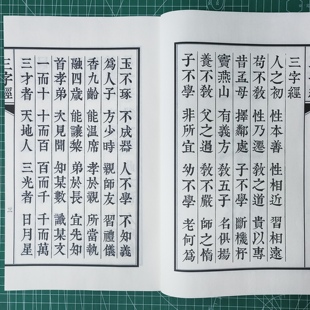 三字經
人之初 性本善 性相近 習相遠
苟不敎 性乃遷 敎之道 貴以專
昔孟母 擇鄰處 子不學 斷機杼
竇燕山 有義方 敎五子 名俱揚
養不敎 父之過 敎不嚴 師之惰
子不學 非所宜 幼不學 老何爲
玉不琢 不成器 人不學 不知義
爲人子 方少時 親師友 習禮儀
香九齡 能溫席 孝於親 所當執
融四歲 能讓梨 弟於長 宜先知
首孝弟 次見聞 知某數 識某文
一而十 十而百 百而千 千而萬
三才者 天地人 三光者 日月星
三字經